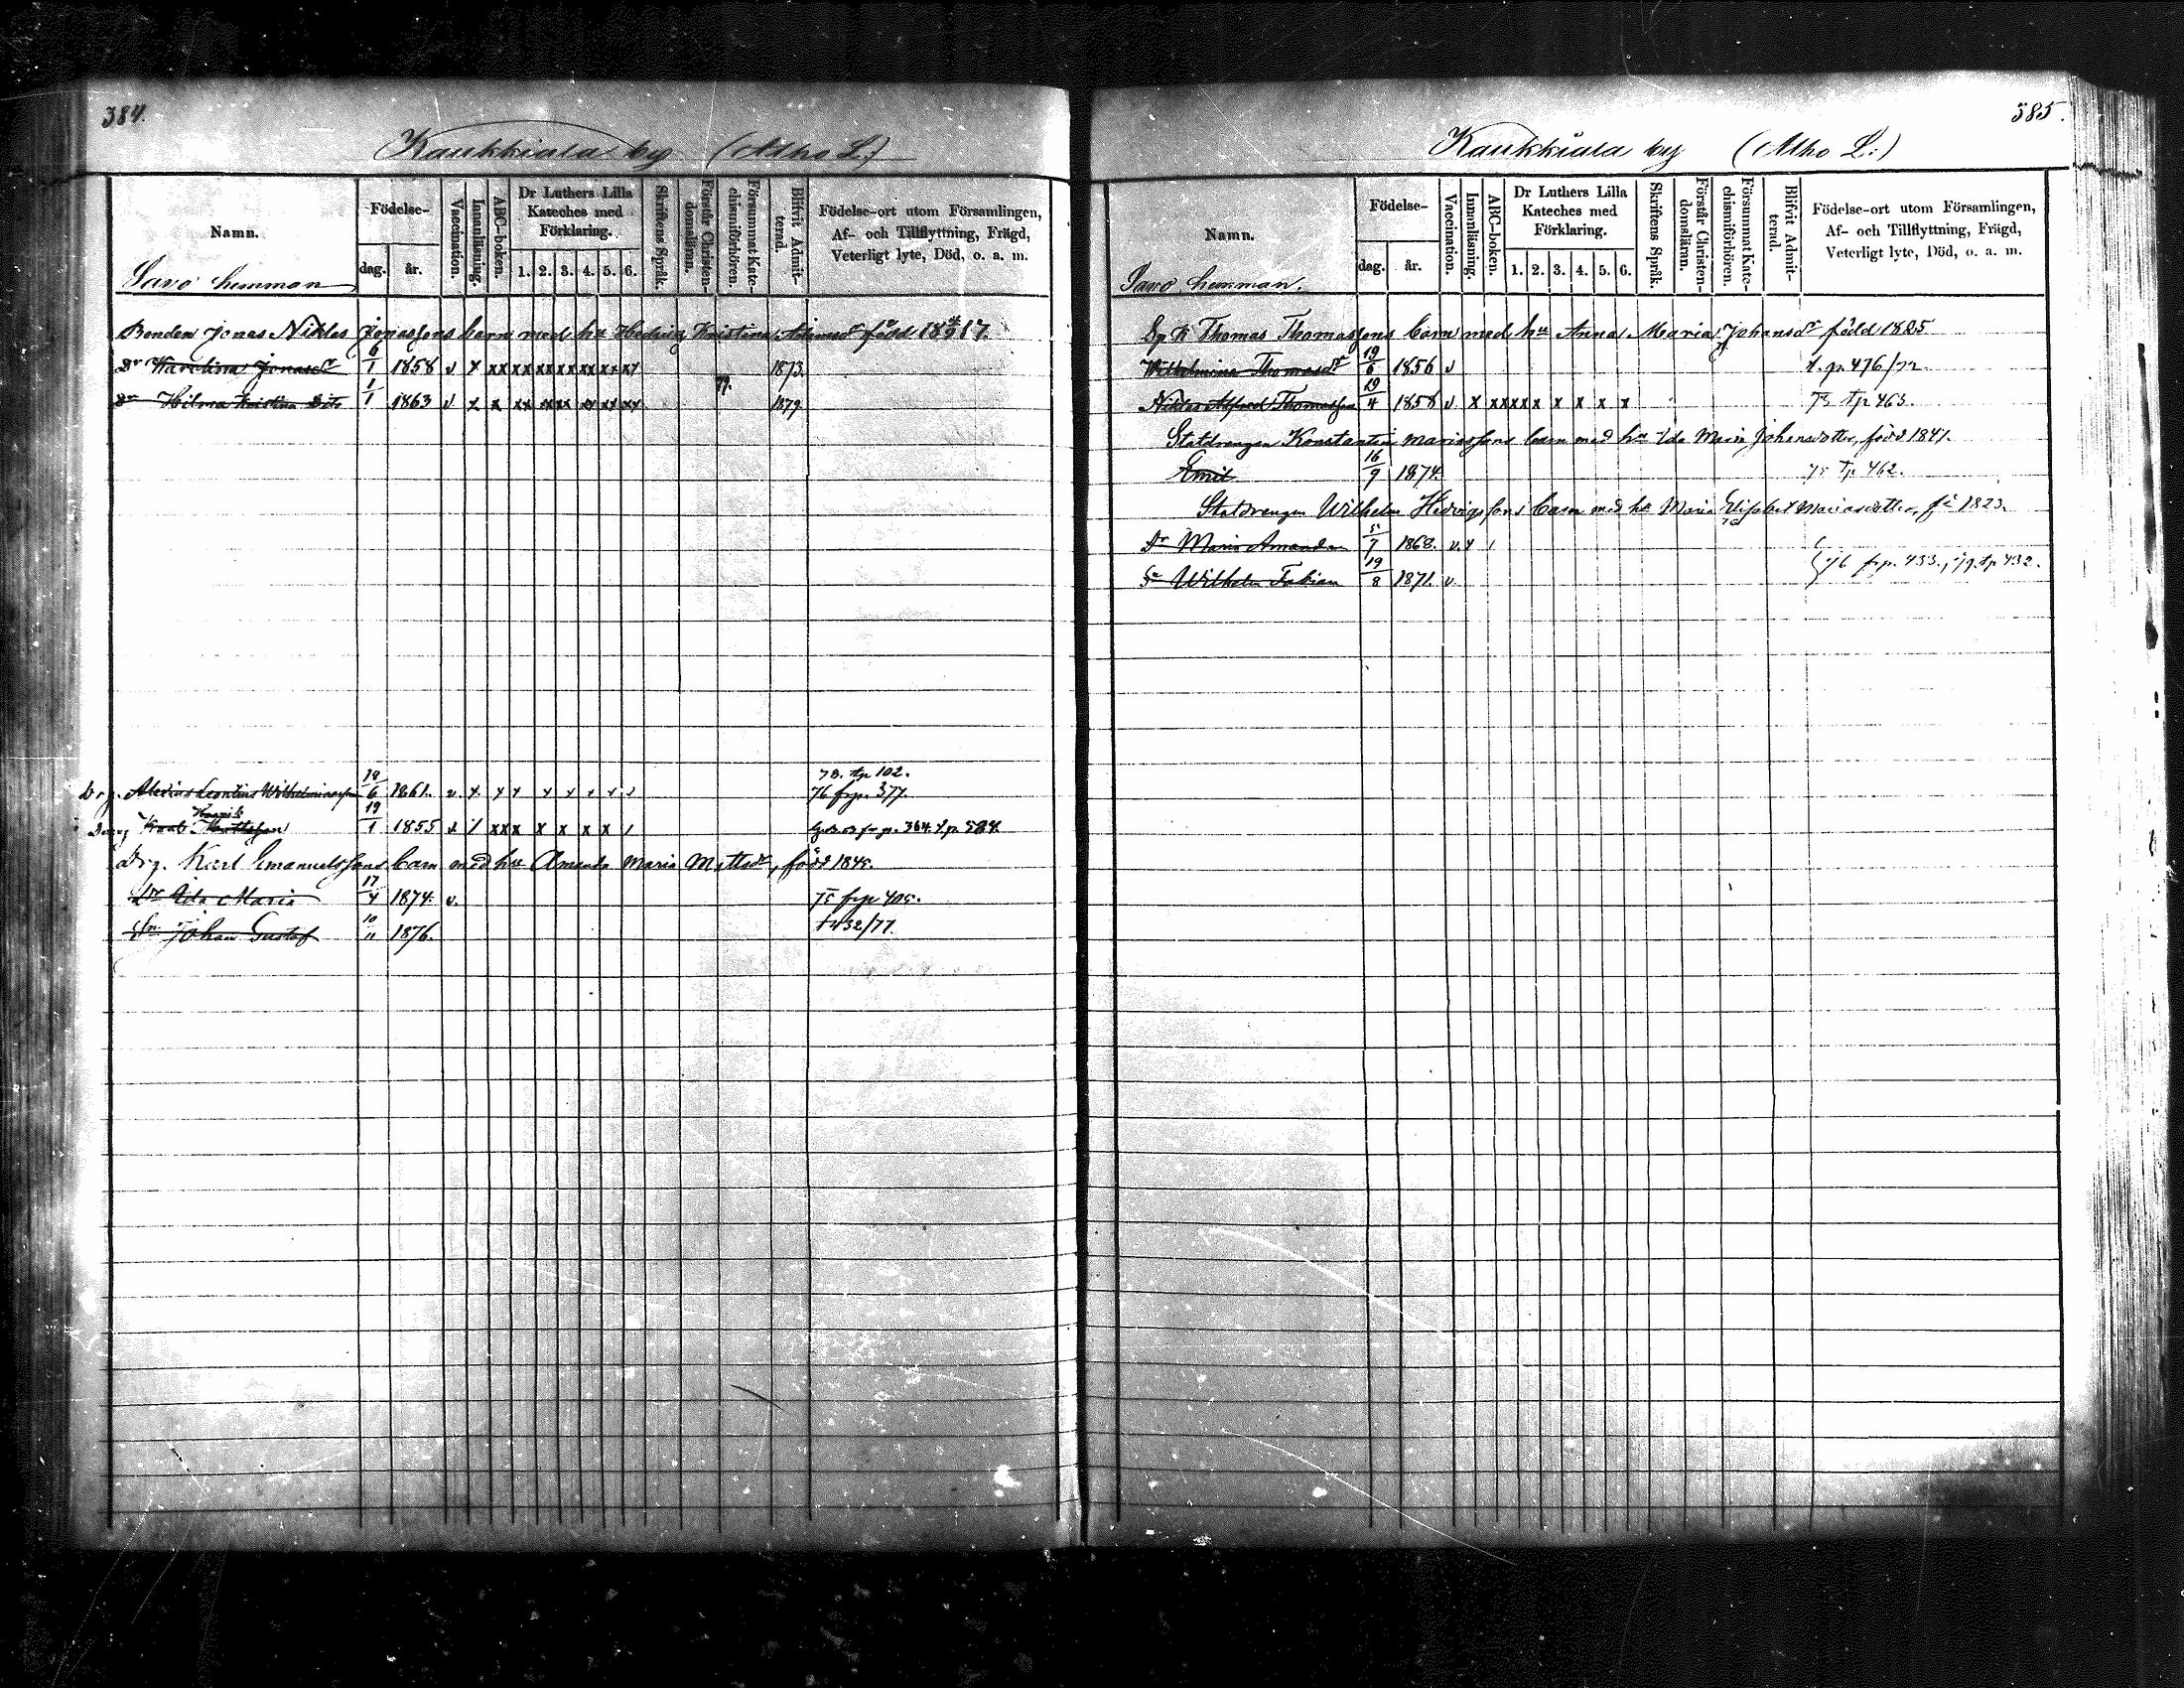 384.
Kaukkiala by (Alho L.)
Namn.
Födelse-
dag.
år.
Vaccination.
Innanläsning.
ABC-boken.
Dr Luthers Lilla
Kateches med
Förklaring.
1. 2. 3. 4. 5. 6.
Skriftens Språk.
Förstår Christen-
domsläran.
Försummat Kate-
chismiförhören.
Blifvit Admit-
terad.
Födelse-ort utom Församlingen,
Af- och Tillflyttning, Frägd,
Veterligt lyte, Död, o. a. m.
Savo hemman
Bonden Jonas Niklas Jonassons barn med hu Hedvig Kristina född 1817.
Dr Karolina Jonasdr 6/1 1858 v x x x x x x x x x x x x x x 1873.
Dr Hilma Kristina Dito 1/1 1863 v x x xx xx xx xx xx xx 77. 1879
78. tp 102.
Drg. Alexius Leontius Wilhelminasson 18/6 1861. v. x x x x x x x x 76 frp. 377.
Henrik
Dreng Karl Mattsson 19/1 1855 x / xx x x x x x / fr p. 364. t p. 584.
Drg. Karl Emanuelssons barn med hu Amanda Maria Mattsdr, född 1845.
Dr Ida Maria 17/4 1874. v. 75 frp 405.
Sn Johan Gustaf 10/11 1876. t 432/77.
385.
Kaukkiala by (Alho L:)
Namn.
Födelse-
dag.
år.
Vaccination.
Innanläsning.
ABC-boken.
Dr Luthers Lilla
Kateches med
Förklaring.
1. 2. 3. 4. 5. 6.
Skriftens Språk.
Förstår Christen-
domsläran.
Försummat Kate-
chismiförhören.
Blifvit Admit-
terad.
Födelse-ort utom Församlingen,
Af- och Tillflyttning, Frägd,
Veterligt lyte, Död, o. a. m.
Savo hemman.
Sp K Thomas Thomassons barn med hu Anna Maria Johansdr född 1825
Wilhelmina Thomasdr 19/6 1856 v t. p. 476/72.
Niklas Alfred Thomasson 19/4 1858 v x xx xx x x x x x 73 tp 463.
Statdrengen Konstantin Mariassons barn med hu Ida Maria Johansdotter, född 1841.
Emil 16/9 1874. 75 tp 462.
Statdrengen Wilhelm Hedvigssons barn med hu Maria Elisabet Mariasdotter, fö 1823.
Dr Maria Amanda 5/7 1868. v. x /
Sn Wilhelm Fabian 19/8 1871. v. 76 frp. 433., 79. tp 432.